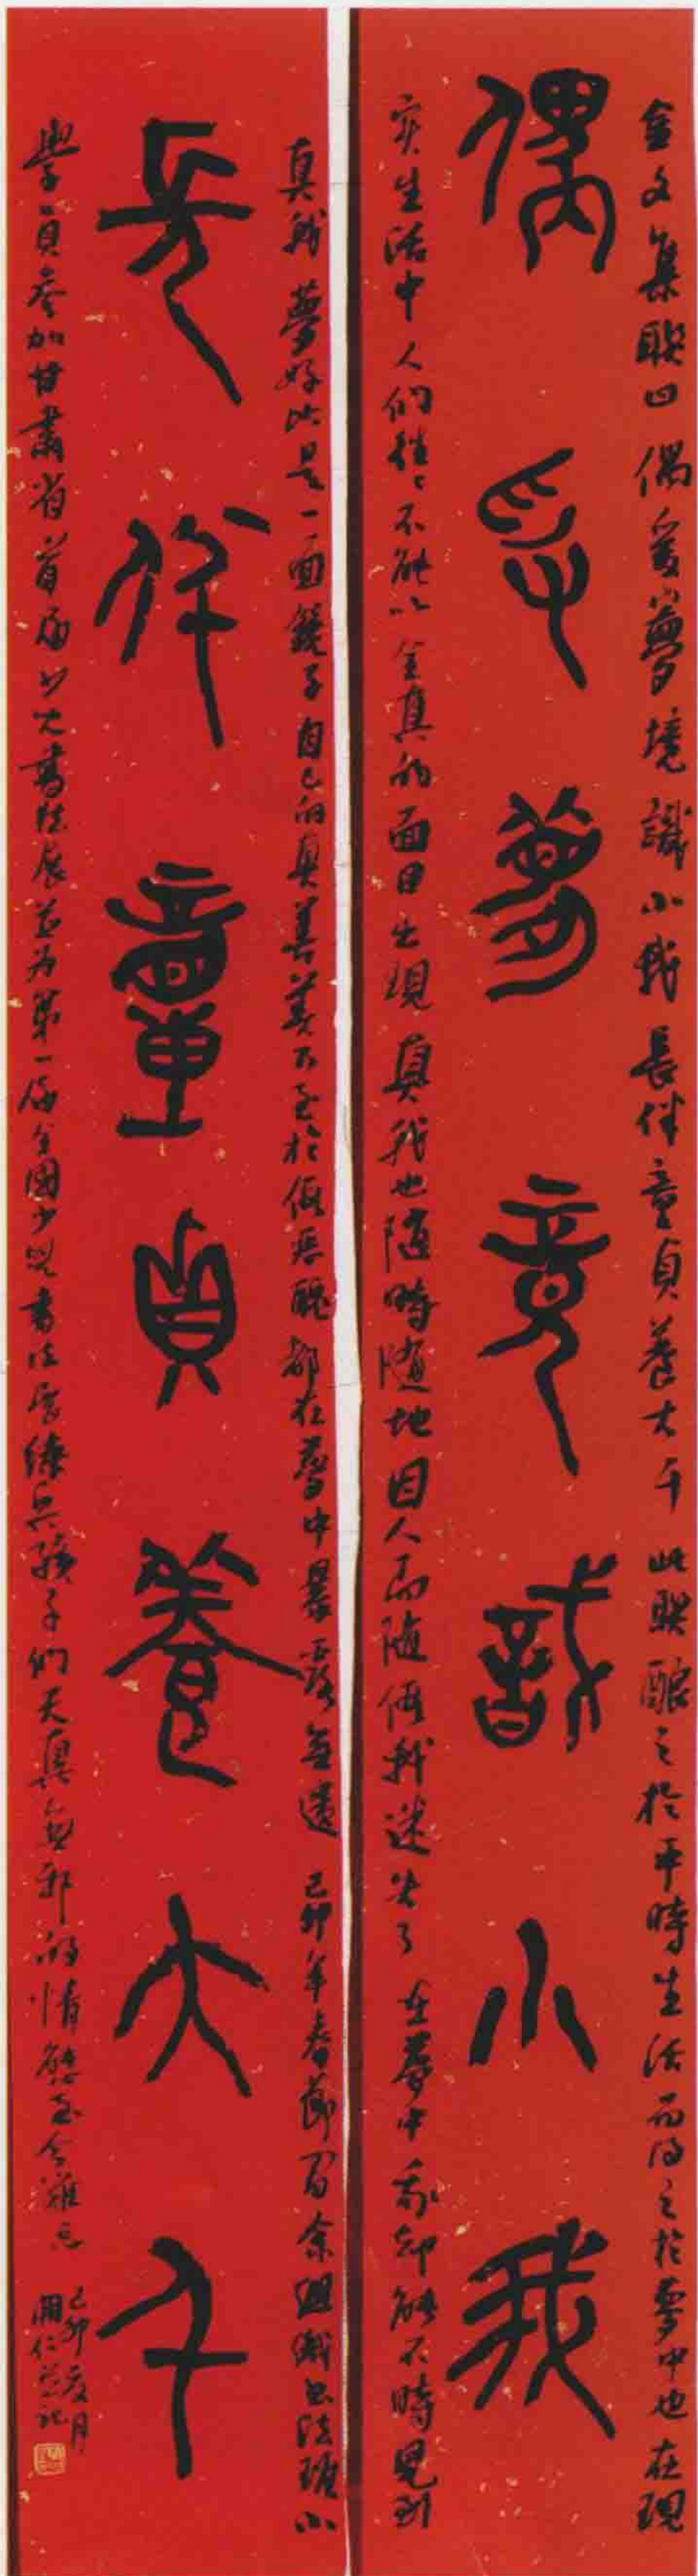 金文集聯曰偶受夢境識小我長伴童貞養大千此聯釀之於平時生活而得之於夢中也在現
偶受夢竟識小我
實生活中人們往往不能以全真的面目出現真我也隨時隨地因人而隨假我迷失了在夢中我卻能不時見到
真我夢好比是一面鏡子自己的真善美乃至於假惡醜都在夢中暴露無遺己卯年春節余組織書法班小
長伴童貞養大千
學員參加甘肅省首屆少兒書法展並為第一屆全國少兒書法展練兵孩子們天真無邪的情態至今難忘
己卯夏月
開仁並記